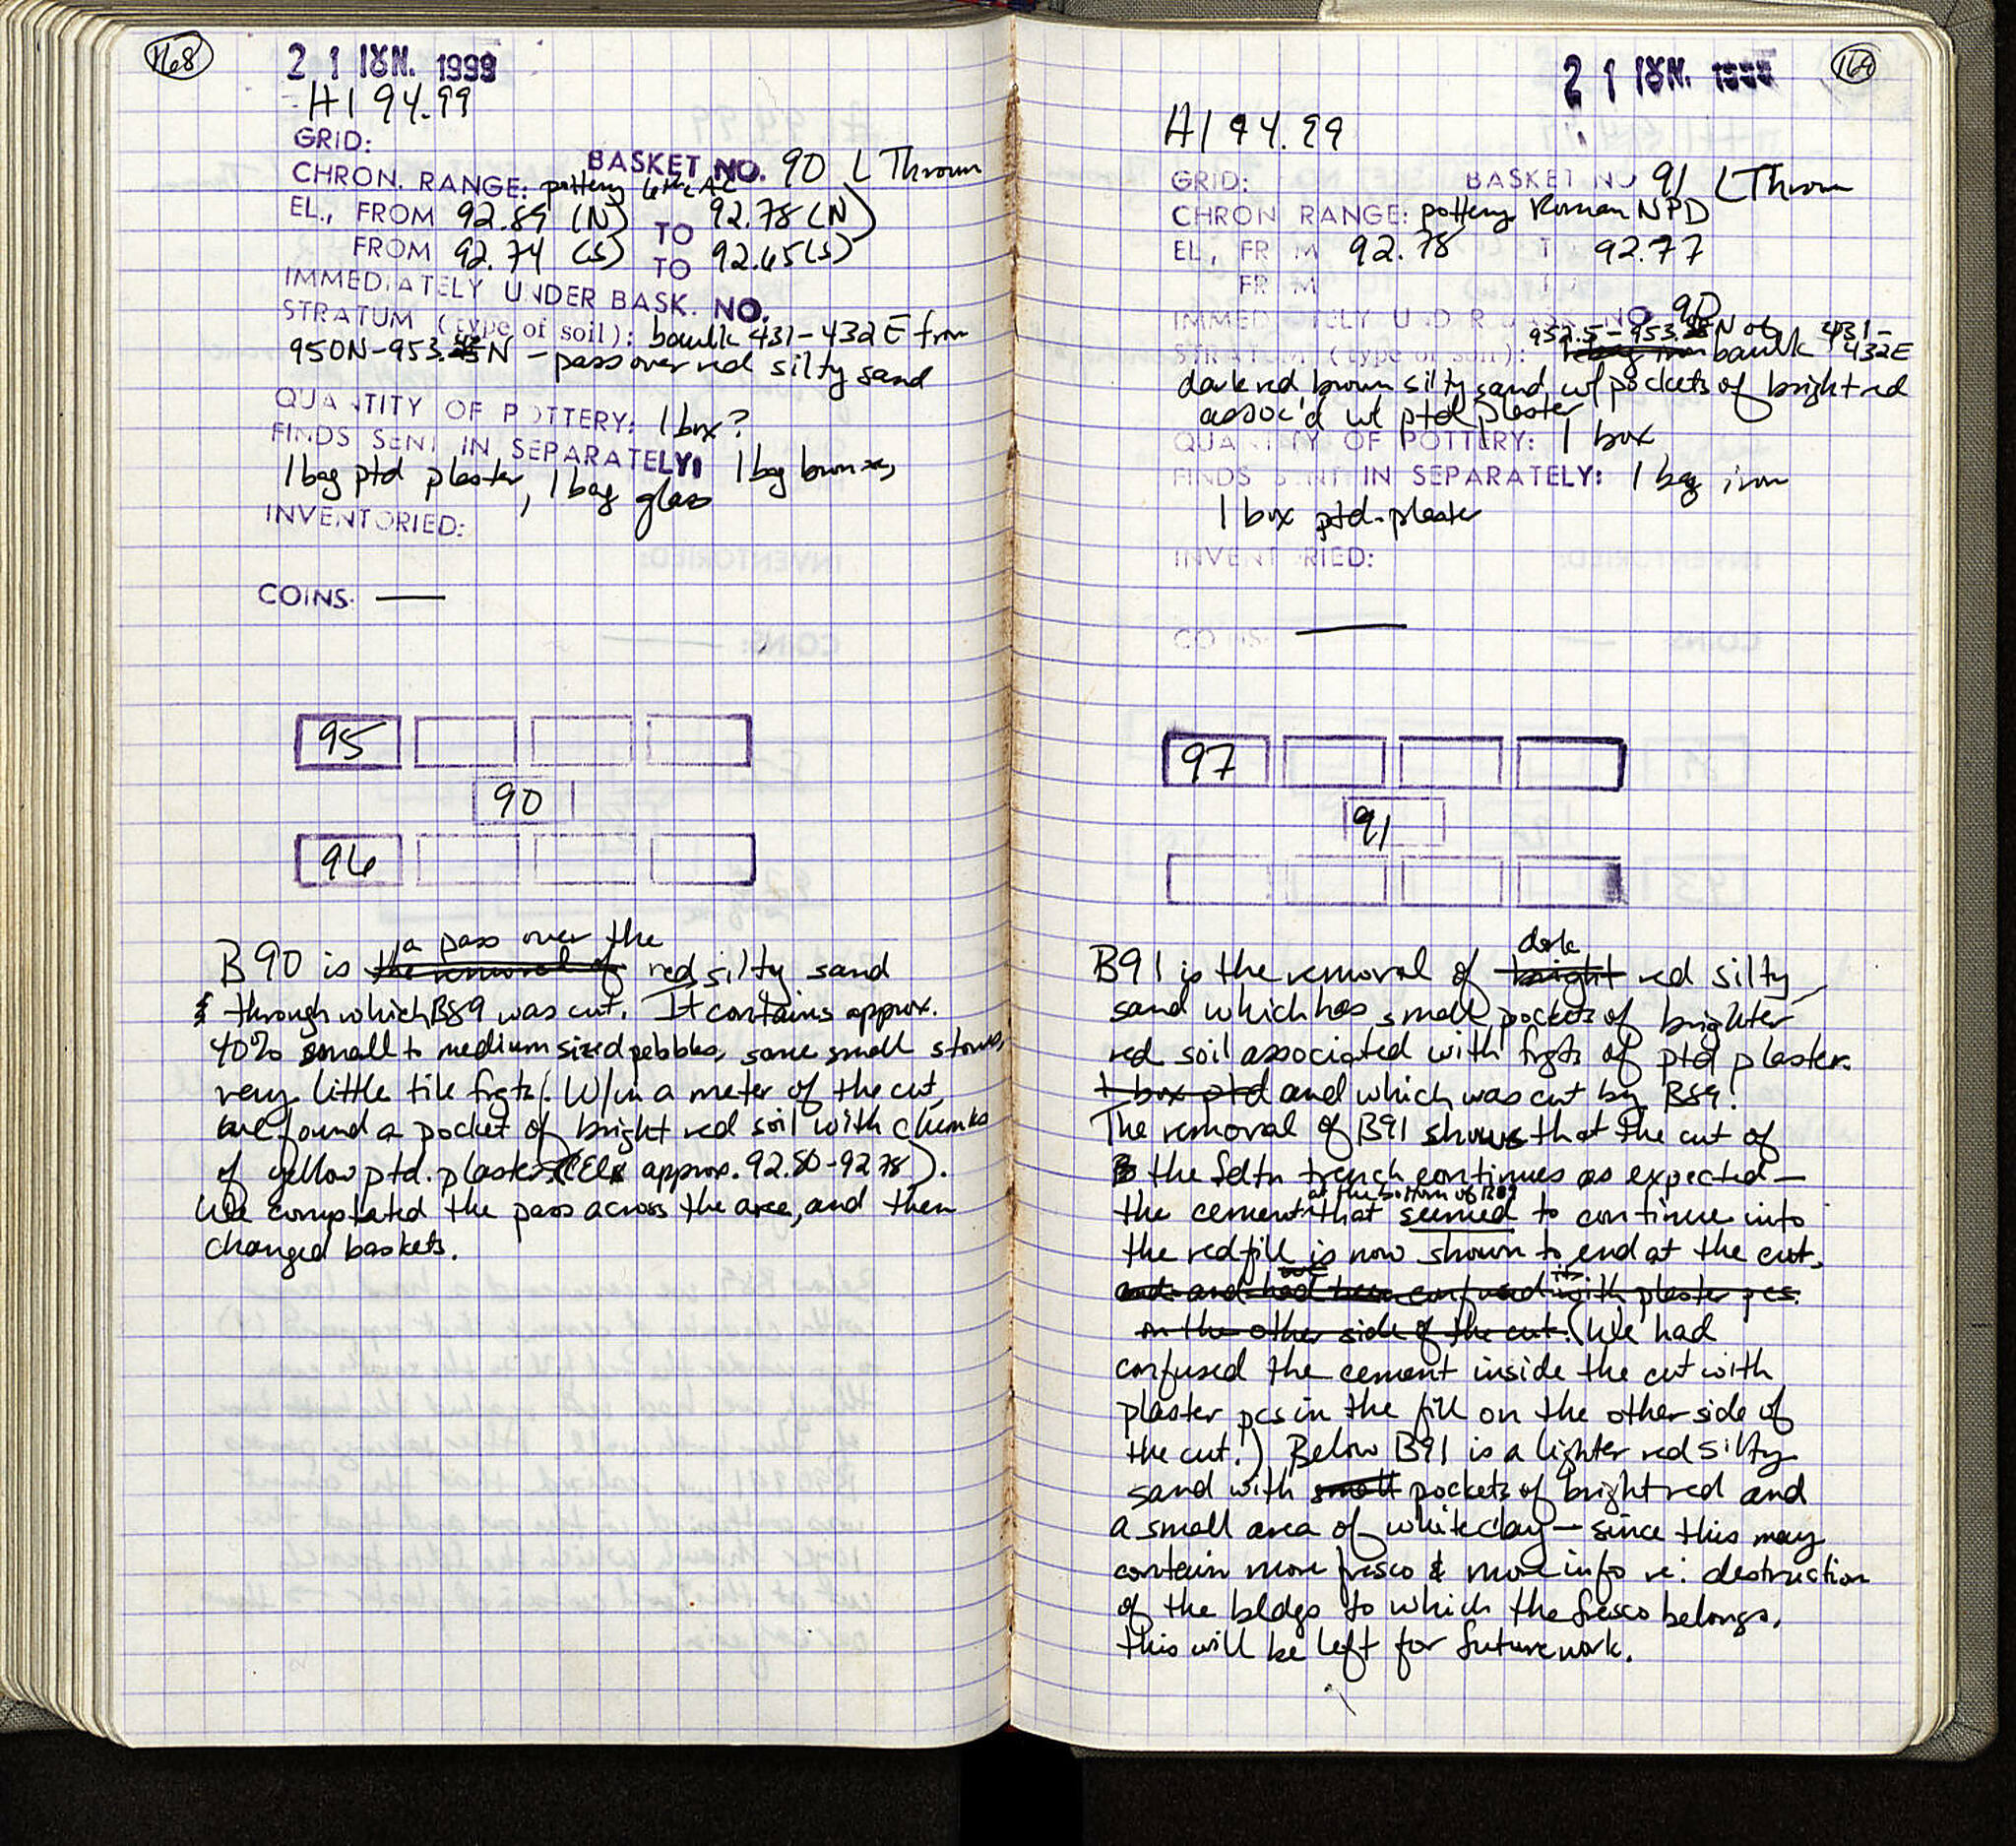 168
21 ΙΟΥΝ. 1999
H1 94.99
GRID:
BASKET NO. 90 L Thrown
CHRON. RANGE: pottery 6thc AC
EL., FROM 92.89 (N) TO 92.78 (N)
FROM 92.74 (S) TO 92.65 (S)
IMMEDIATELY UNDER BASK. NO.
STRATUM (type of soil): baulk 431-432E from
950N-953. N - pass over red silty sand
QUANTITY OF POTTERY: 1 box?
FINDS SENT IN SEPARATELY: 1 bag bronze,
1 bag ptd plaster, 1 bag glass
INVENTORIED:
COINS: —
95
90
96
B90 is the removal of a pass over the red silty sand
& through which B89 was cut. It contains approx.
40% small to medium sized pebbles, some small stones,
very little tile frgts. W/in a meter of the cut,
we found a pocket of bright red soil with chunks
of yellow ptd. plaster (El. approx. 92.80-92.78).
We completed the pass across the area, and then
changed baskets.
169
21 ΙΟΥΝ. 1999
H1 94.99
GRID: BASKET NO 91 L Thrown
CHRON RANGE: pottery Roman NPD
EL., FROM 92.78 TO 92.77
FROM
IMMEDIATELY UNDER BASK. NO. 90
952.5-953. N of
STRATUM (type of soil): baulk 431-432E
dark red brown silty sand w/ pockets of bright red
assoc'd w/ ptd plaster
QUANTITY OF POTTERY: 1 box
FINDS SENT IN SEPARATELY: 1 bag iron
1 box ptd. plaster
INVENTORIED:
COINS: —
97
91
B91 is the removal of bright dark red silty
sand which has small pockets of brighter
red soil associated with frgts of ptd plaster.
1 box ptd and which was cut by B89.
The removal of B91 shows that the cut of
B the fdtn trench continues as expected —
the cement at the bottom of B89 that seemed to continue into
the red fill is now shown to end at the cut,
and had been confused with plaster pcs.
on the other side of the cut. (We had
confused the cement inside the cut with
plaster pcs in the fill on the other side of
the cut.) Below B91 is a lighter red silty
sand with small pockets of bright red and
a small area of white clay — since this may
contain more fresco & more info re: destruction
of the bldgs to which the fresco belongs,
this will be left for future work.